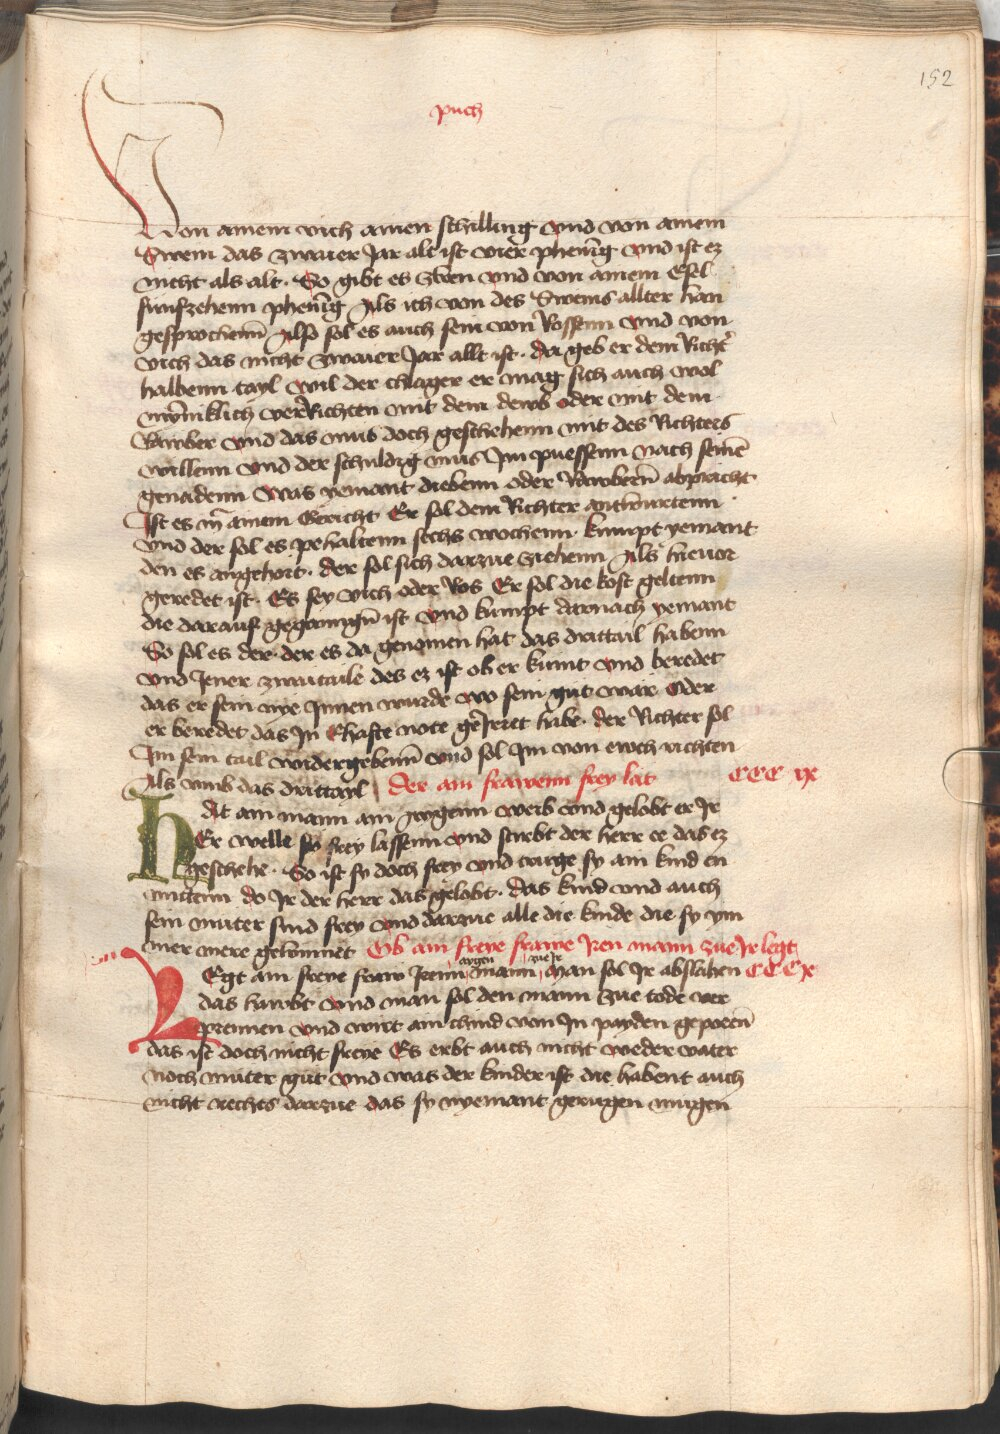 152
puch
Von ainem vich ainen schilling vnd von ainem
Swein das zwaier Jar alt ist vier phenīg vnd ist ez
nicht als alt. So gibt es zwen vnd von ainem Esel
funfzehenn phenīg Als ich von des Sweins allter han
gesprochenn̄ Also sol es auch sein von Rossenn vnd von
vich das nicht zwaier Jar allt ist. da geb er dem Richt̄
halbenn tayl wil der chlager er mag sich auch wol
mȳniklich verRichten mit dem dewb oder mit dem
Rawber vnd das mus doch geschehenn mit des Richters
willenn vnd der schuldig mus Im puessenn nach seinē
genadenn Was yemant diebenn oder Rawbernn̄ abpricht
Ist es in ainem Gericht Er sol dem Richter antwurtenn
vnd der sol es pehaltenn sechs wochenn. kumpt yemant
den es angehort. der sol sich darzue ziehenn Als hieuor
geredet ist. Es sey vich oder Ros Er sol die kost geltenn
die darauf gegangn̄ ist vnd kumpt darnach yemant
So sol es der. der es da genomen hat das drittail habenn
vnd Jener zwaitaile des ez ist ob er kumt vnd beredet
das er sein nye Innen wurde wo sein gut wär oder
er beredet das In Ehafte note geIrret habe. der Richter sol
Im sein tail widergebenn̄ vnd sol Im von ewch richten
Als vmb das drittayl der ain frawenn frey lat CCC ix
Hat ain mann ain aygenn weib vnd gelobt er Ir
Er welle sy frey lassenn vnd stirbt der herr ee das ez
geschehe. So ist sy doch frey vnd truge sy ain kind en
mittenn do Ir der herr das gelobt. das kind vnd auch
sein muter sind frey vnd darzue alle die kinde die sy ym
mer mere gebinnet Ob ain freye frawe Iren mann zue Ir legt
aygen zue Ir
Legt ain freye fraw Irenn mann Man sol Ir abslahen CCCx
das hawbt vnd man sol den mann zue tode ver
prennen vnd wirt ain chind von In payden geporen̄
das ist doch nicht freye Es erbt auch nicht weder vater
noch muter gut vnd was der kinder ist die habent auch
nicht rechts darzue das sy nyemant gezugen mugen